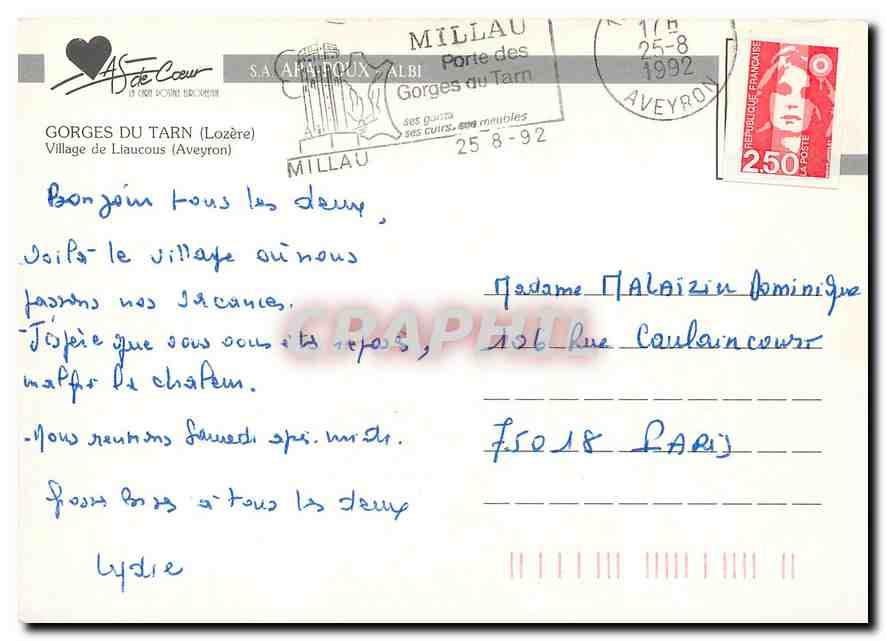 AS de Cœur
LA CARTE POSTALE EUROPEENNE
S.A. APA-POUX - ALBI
GORGES DU TARN (Lozère)
Village de Liaucous (Aveyron)
MILLAU
Porte des
Gorges du Tarn
ses gants
ses cuirs, ses meubles
MILLAU
25-8-92
17H
25-8
1992
AVEYRON
REPUBLIQUE FRANÇAISE
2,50
LA POSTE
Bonjour tous les deux,
voilà le village où nous
passons nos vacances.
J'espère que vous vous êtes reposés,
malgré la chaleur.
-Nous rentrons Samedi après-midi.
Grosses bises à tous les deux
Lydie
Madame MALAIZIN Dominique
126 Rue Caulaincourt
75018 PARIS
CPAPHIL